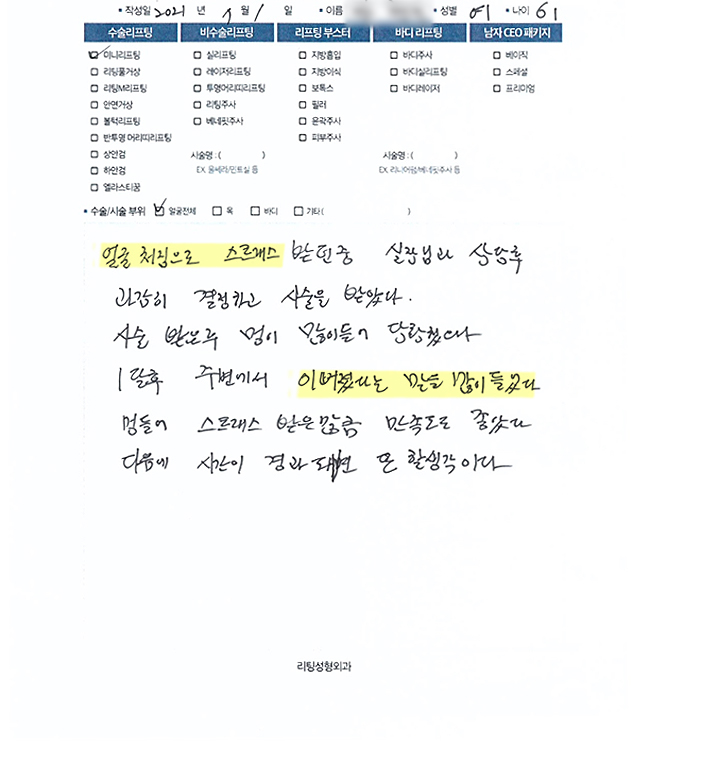 • 작성일 2021 년 월 1 일 • 이름 • 성별 여 • 나이 61
수술리프팅 비수술리프팅 리프팅 부스터 바디 리프팅 남자 CEO 패키지
미니리프팅 실리프팅 지방흡입 바디주사 베이직
리팅풀거상 레이저리프팅 지방이식 바디실리프팅 스페셜
리팅M리프팅 투명머리띠리프팅 보톡스 바디레이저 프리미엄
안면거상 리팅주사 필러
볼턱리프팅 베네핏주사 윤곽주사
반투명 머리띠리프팅 피부주사
상안검 시술명 : ( ) 시술명 : ( )
하안검 EX. 울쎄라/민트실 등 EX. 리니어펌/베네핏주사 등
엘라스티꿈
• 수술/시술 부위 얼굴전체 목 바디 기타 ( )
얼굴 처짐으로 스트래스 받던중 실장님과 상담후
과감히 결정하고 시술을 받았다.
시술 받은후 멍이 많이들어 당황했다
1달후 주변에서 이뻐졌다는 말을 많이 들었다
멍들어 스트래스 받은많큼 만족도도 좋았다
다음에 시간이 경과되면 또 할생각이다
리팅성형외과